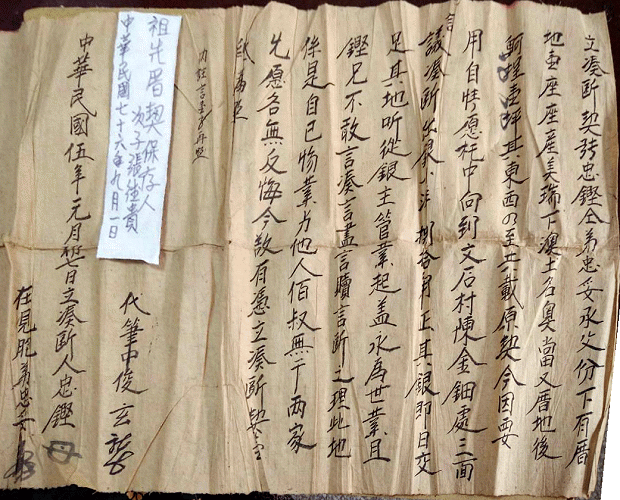 立湊斷契張忠鏗仝弟忠妥承父份下有厝
地壹座座產美瑞下澳土名奧當又厝地後
壹坪其東西四至共載原契今因要
用自情愿托中向到文石村陳金鈿處三面
言議湊斷出銀小洋捌拾角正其銀即日交
足其地听從銀主管業起盖永為世業且
鏗兄不敢言湊言盡言贖言斷之理此地
係是自己物業与他人伯叔無干兩家
先愿各無反悔今敘有憑立湊斷契壹
為照
內註言壹字再照
中華民國伍年元月日立湊斷人忠鏗
在見胞弟忠妥
代筆中俊玄
祖先厝契保存人
次子張徒貴
中華民國七十六年九月一日